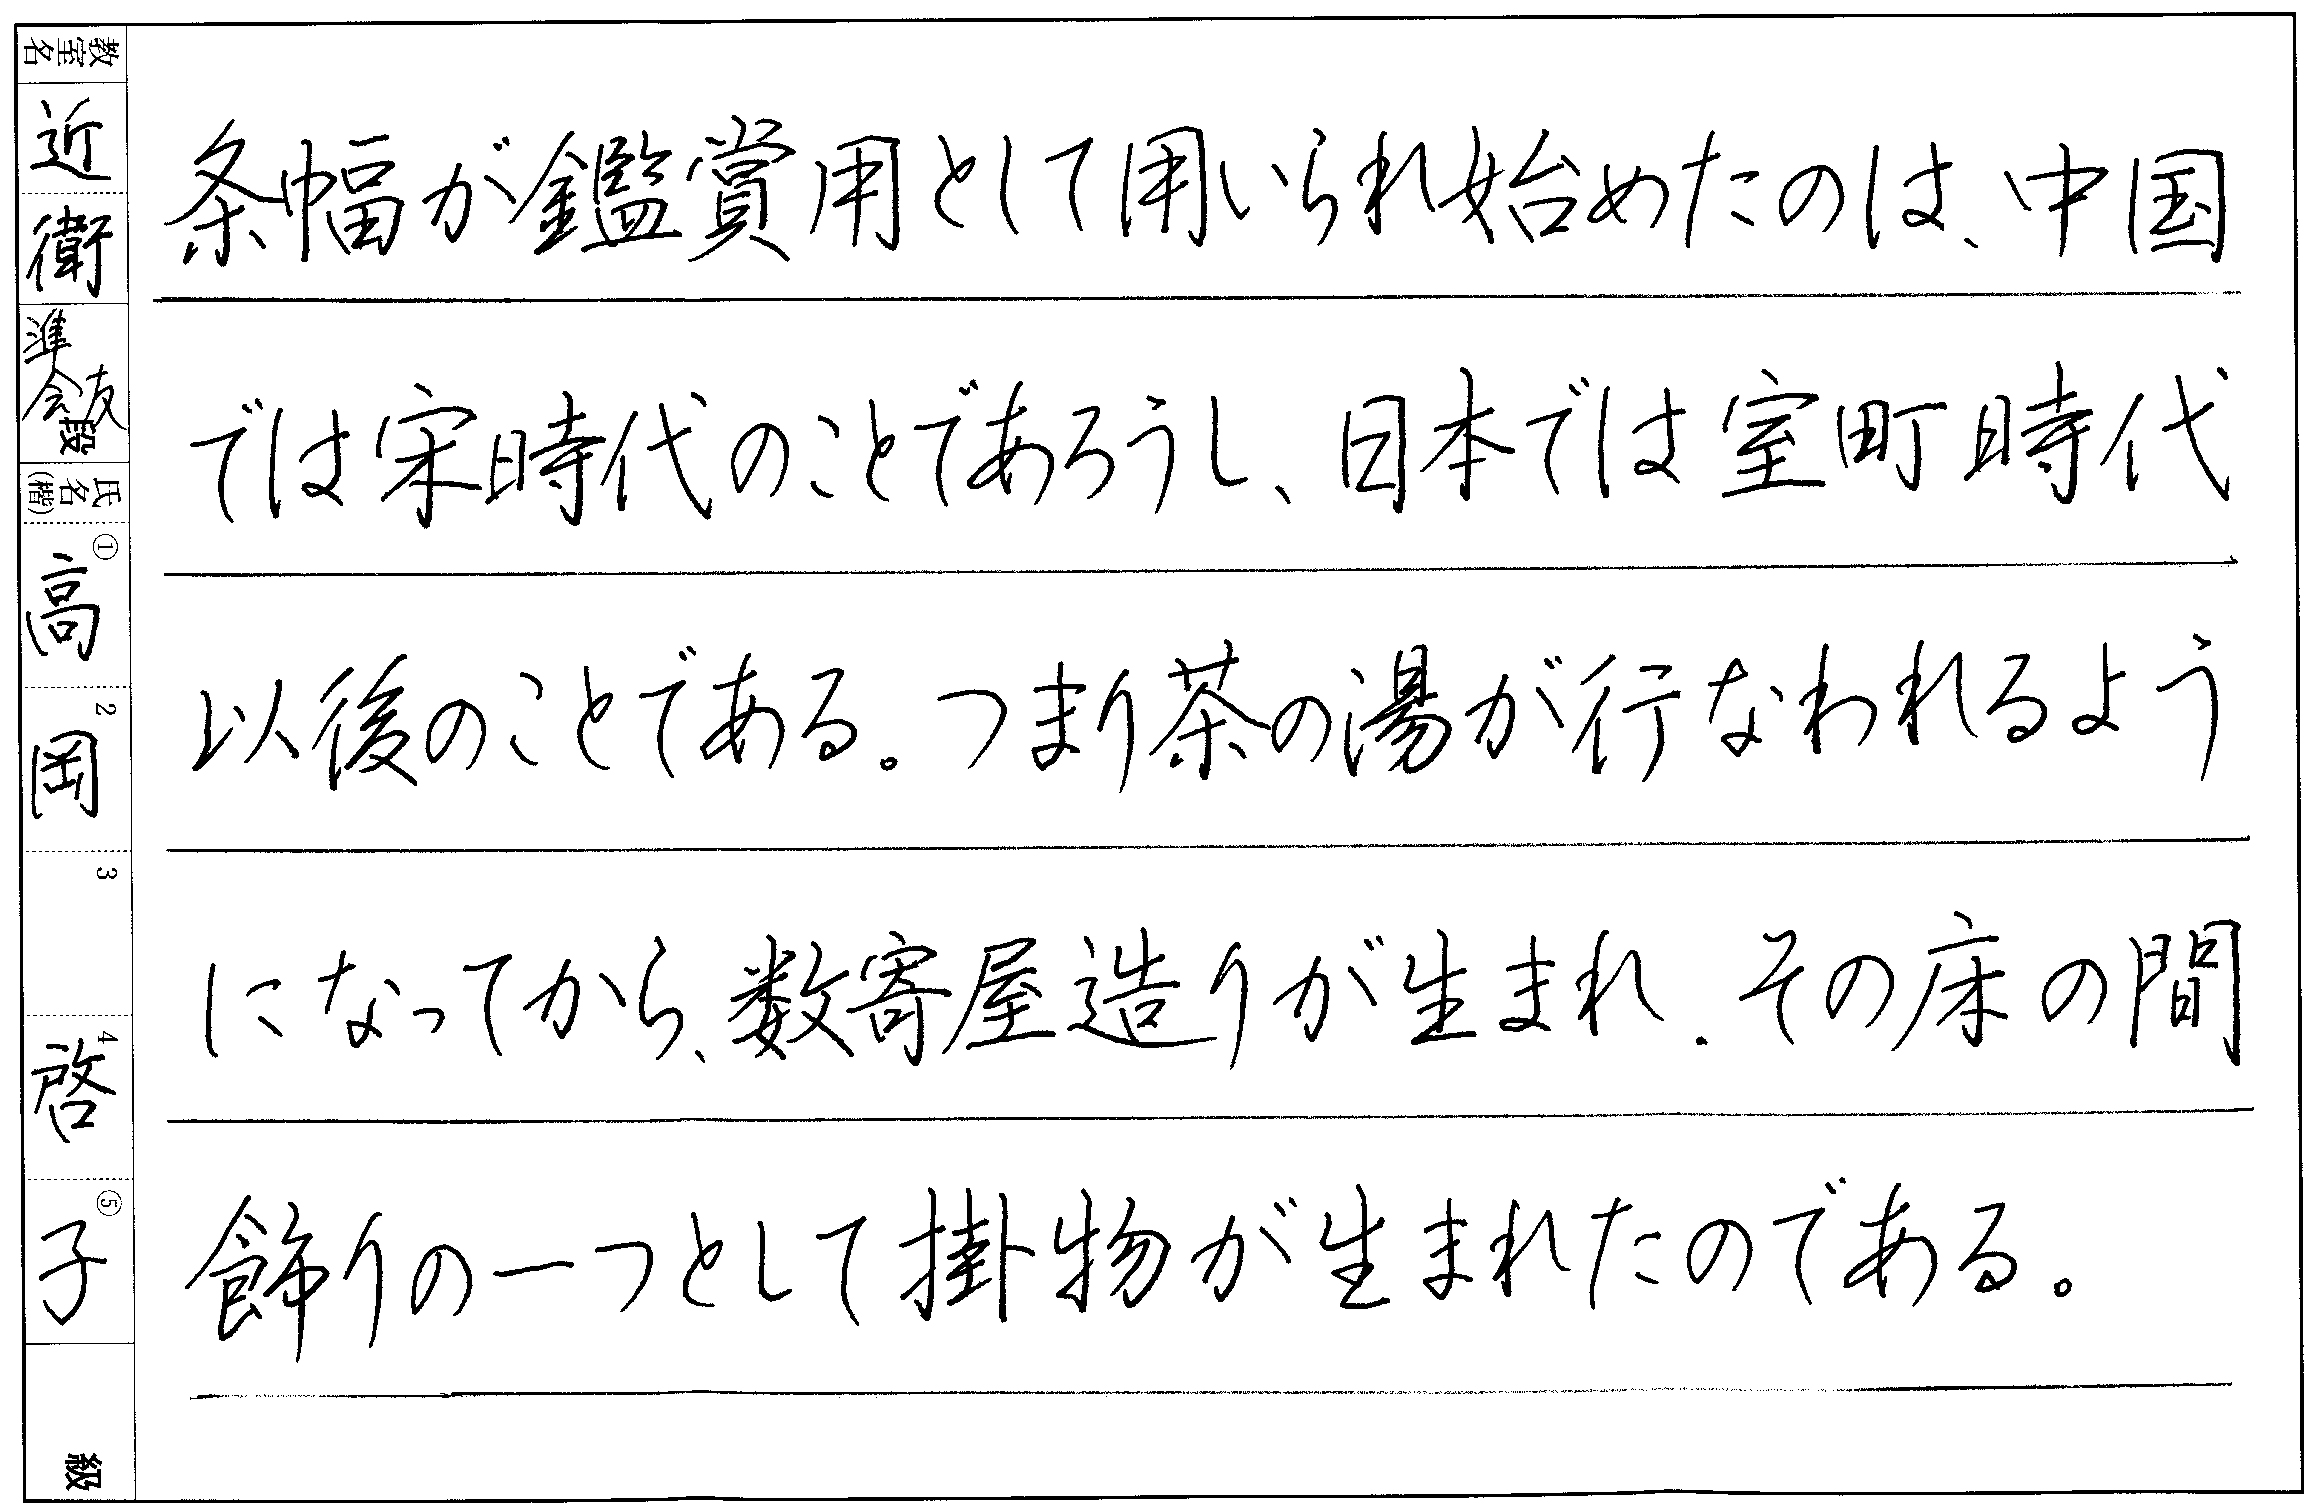 条幅が鑑賞用として用いられ始めたのは、中国
では宋時代のことであろうし、日本では室町時代
以後のことである。つまり茶の湯が行なわれるよう
になってから、数寄屋造りが生まれ、その床の間
飾りの一つとして掛物が生まれたのである。
教室名
近衛
準会友
段
氏名
(楷)
① 高
2 岡
3
4 啓
⑤ 子
級